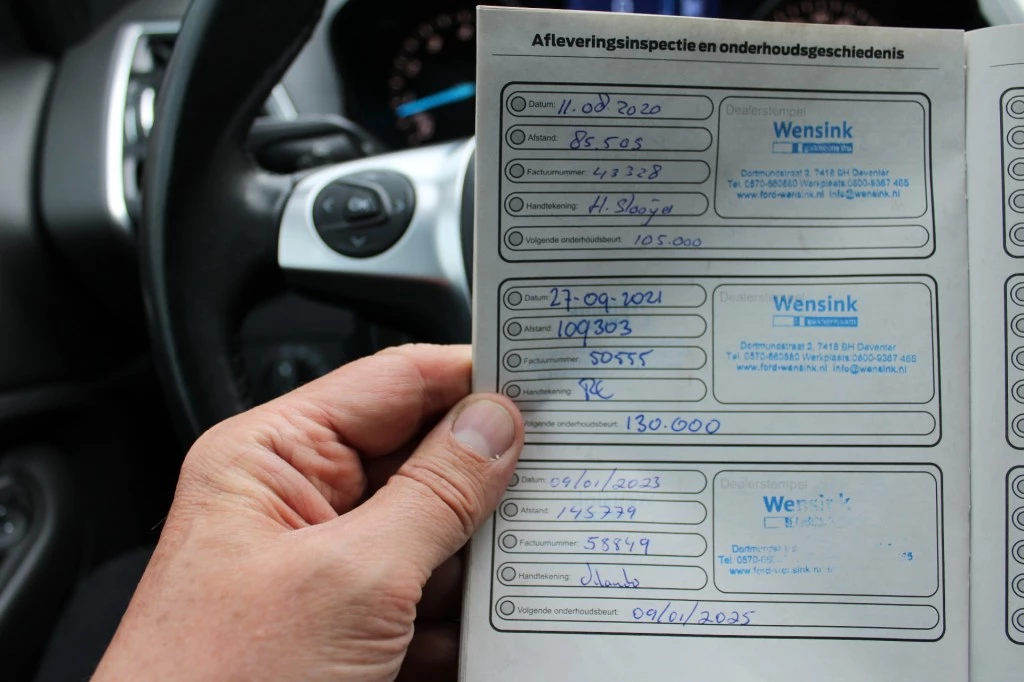 Afleveringsinspectie en onderhoudsgeschiedenis
Datum: 11.08.2020
Afstand: 85.505
Factuurnummer: 43328
Handtekening:
Volgende onderhoudsbeurt: 105.000
Dealerstempel
Wensink
Dortmundstraat 2, 7418 BH Deventer
Tel. 0570-660580 Werkplaats:0800-9367 465
www.ford-wensink.nl info@wensink.nl
Datum: 27-09-2021
Afstand: 109303
Factuurnummer: 50555
Handtekening:
Volgende onderhoudsbeurt: 130.000
Dealerstempel
Wensink
Dortmundstraat 2, 7418 BH Deventer
Tel. 0570-660580 Werkplaats:0800-9367 465
www.ford-wensink.nl info@wensink.nl
Datum: 09/01/2023
Afstand: 145779
Factuurnummer: 58849
Handtekening:
Volgende onderhoudsbeurt: 09/01/2025
Dealerstempel
Wensink
Tel. 0570-
www.ford-wensink.nl